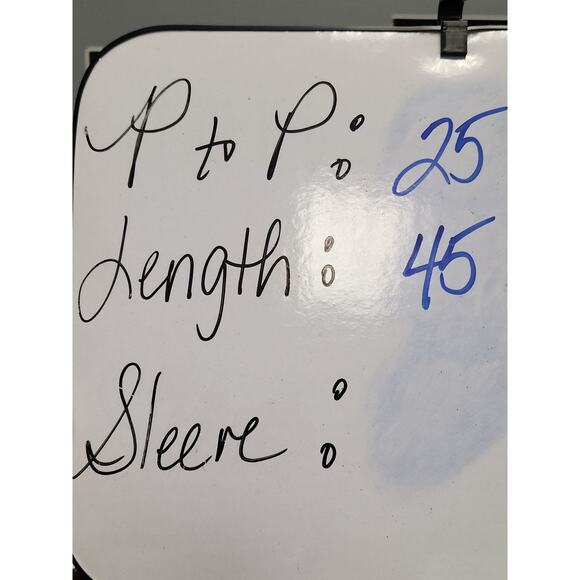 P to P: 25
Length: 45
Sleeve: